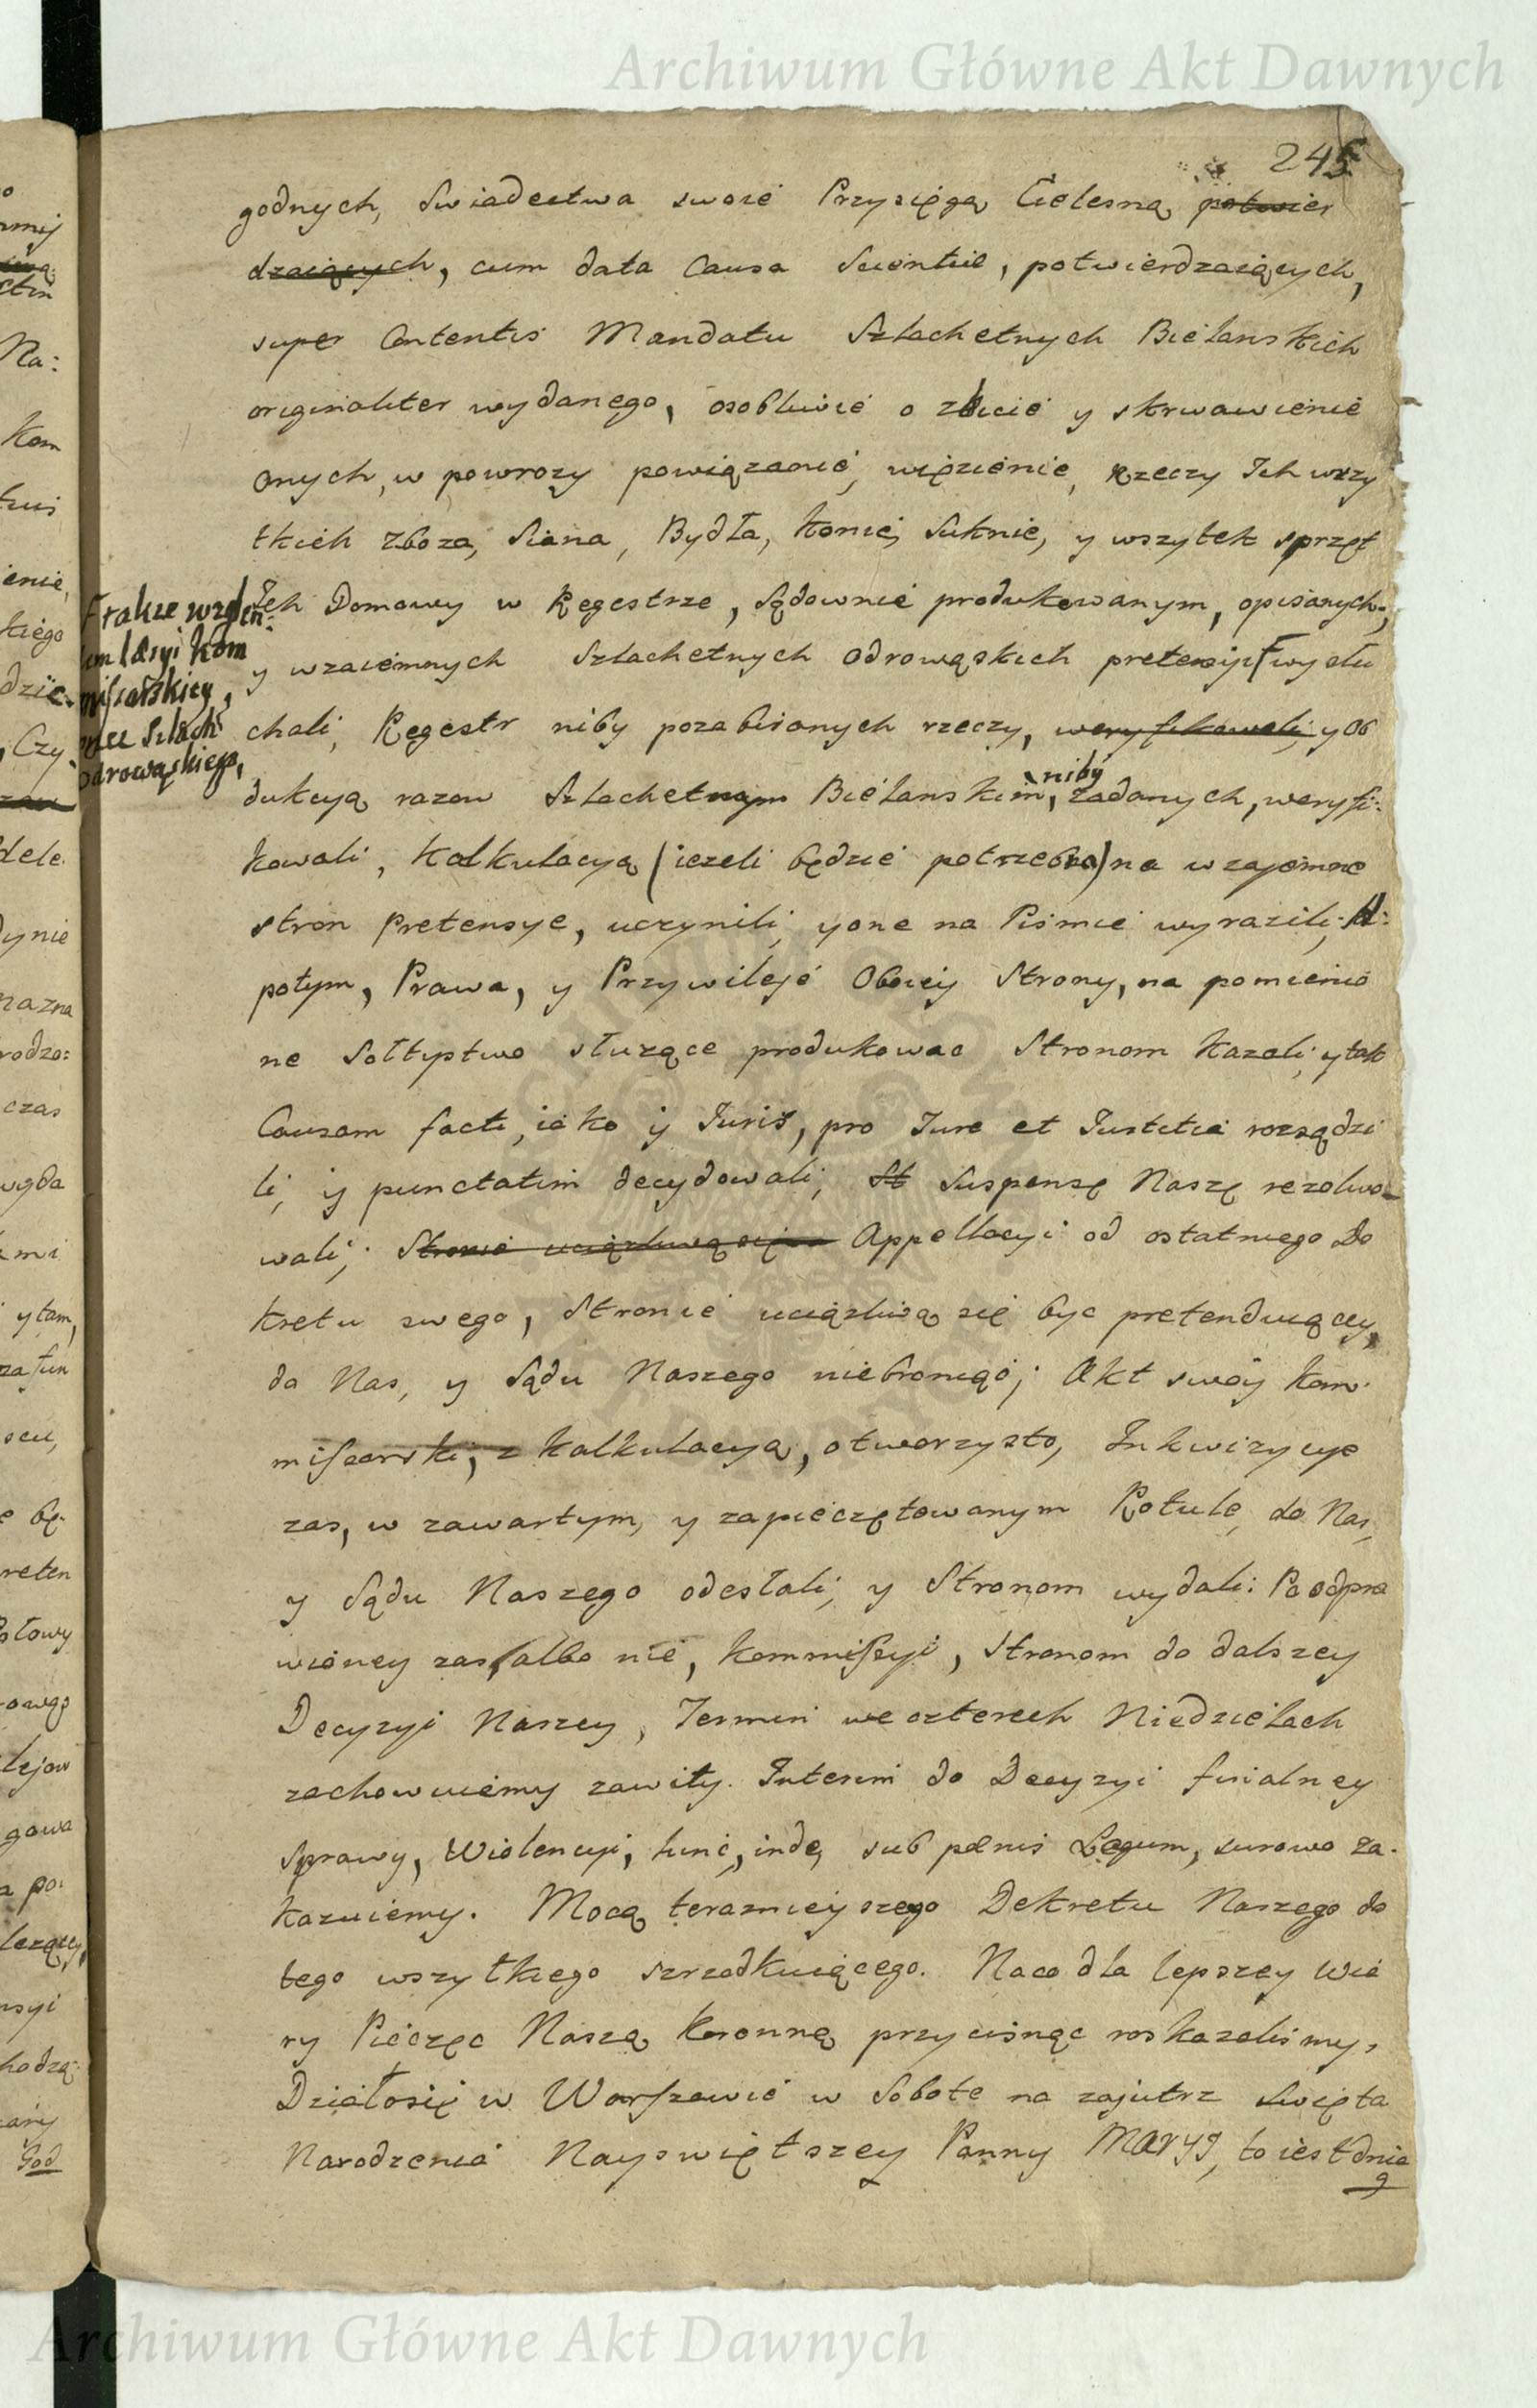 Archiwum Główne Akt Dawnych
245
godnych, Swiadectwa swoie Przysięgą Cielesną potwier
dzaiących, cum data Causa Scientiæ, potwierdzaiących,
super Contentis Mandatu Szlachetnych Bielanskich
originaliter wydanego, osobliwie o zbicie y skrwawienie
onych, w powrozy powiązanie, więzienie, Rzeczy Ich wszy
tkich Zboza, Siana, Bydła, Konie, Suknie, y wszytek sprzęt
Ich Domowy w Regestrze, sądownie produkowanym, opisanych,
y wzaiemnych Szlachetnych Odrowąskich pretensyi wysłu
chali, Regestr niby pozabieranych rzeczy, weryfikowali, y Ob
dukcyą razow Szlachetnym Bielanskim, niby zadanych, weryfi:
kowali, Kalkulacyą (iezeli będzie potrzebna) na wzajemne
stron pretensye, uczynili, y one na Pismie wyrazili; A:
potym, Prawa, y Przywileje Oboiey Strony, na pomienio
ne Sołtystwo słuzące produkowac Stronom kazali, y tak
Causam facti, iako y Juris, pro Jure et Justitia rozsądzi
li, y punctatim decydowali, St Suspensę Naszę rezolwo
wali; Stronie uciązliwą się Appellacyi od ostatniego De
kretu swego, Stronie uciązliwą się byc pretenduiącey,
do Nas, y Sądu Naszego niebroniąc; Akt swoy Kom
missarski, z Kalkulacyą, otworzysto, Inkwizycye
zas, w zawartym, y zapieczętowanym Rotule, do Nas,
y Sądu Naszego odesłali, y Stronom wydali: Po odpra
wioney zas, albo nie, Kommissyi, Stronom do dalszey
Decyzyi Naszey, Termin we czterech Niedzielach
zachowuiemy zawity. Interim do Decyzyi finalney
Sprawy, Wiolencyi, hinc, inde, sub pœnis Legum, surowo za-
kazuiemy. Mocą teraznieyszego Dekretu Naszego do
tego wszytkiego szrzodkuiącego. Na co dla lepszey Wia
ry Pieczęc Naszą Koronną przycisnąc roskazalismy,
Działosię w Warszawie w Sobote na zajutrz Swięta
Narodzenia Nayswiętszey Panny MARYI, to iest dnia
9
Archiwum Główne Akt Dawnych